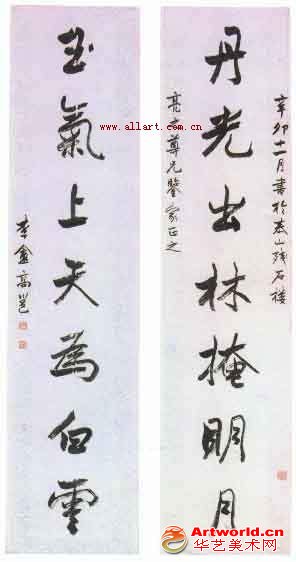 丹光出林掩明月
辛卯十一月書於泰山殘石樓
尊兄鑒家正之
玉氣上天為白雲
李盦高邕
www.allart.com.cn
Artworld.cn
华艺美术网